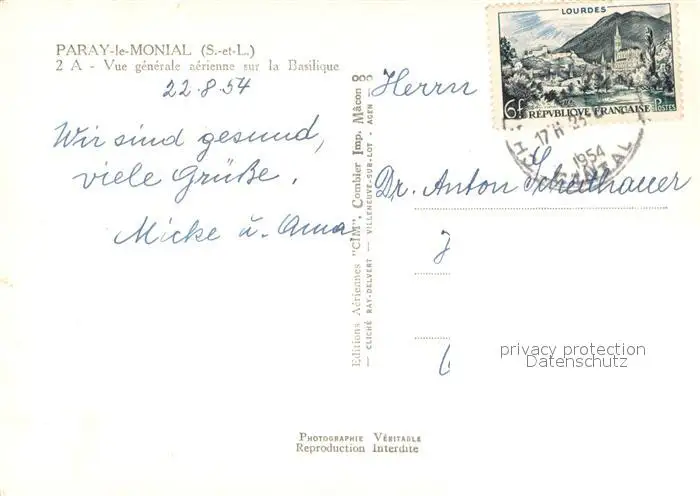 PARAY-le-MONIAL (S.-et-L.)
2 A - Vue générale aérienne sur la Basilique
22.8.54
Wir sind gesund,
viele Grüße.
Micke u. Anna
Editions Aériennes "CIM", Combier Imp. Mâcon
— CLICHÉ RAY-DELVERT — VILLENEUVE-SUR-LOT - AGEN
LOURDES
6f RÉPUBLIQUE FRANÇAISE POSTES
17H 23
1954
Herrn
Dr. Anton Scheidhauer
privacy protection
Datenschutz
PHOTOGRAPHIE VÉRITABLE
Reproduction Interdite